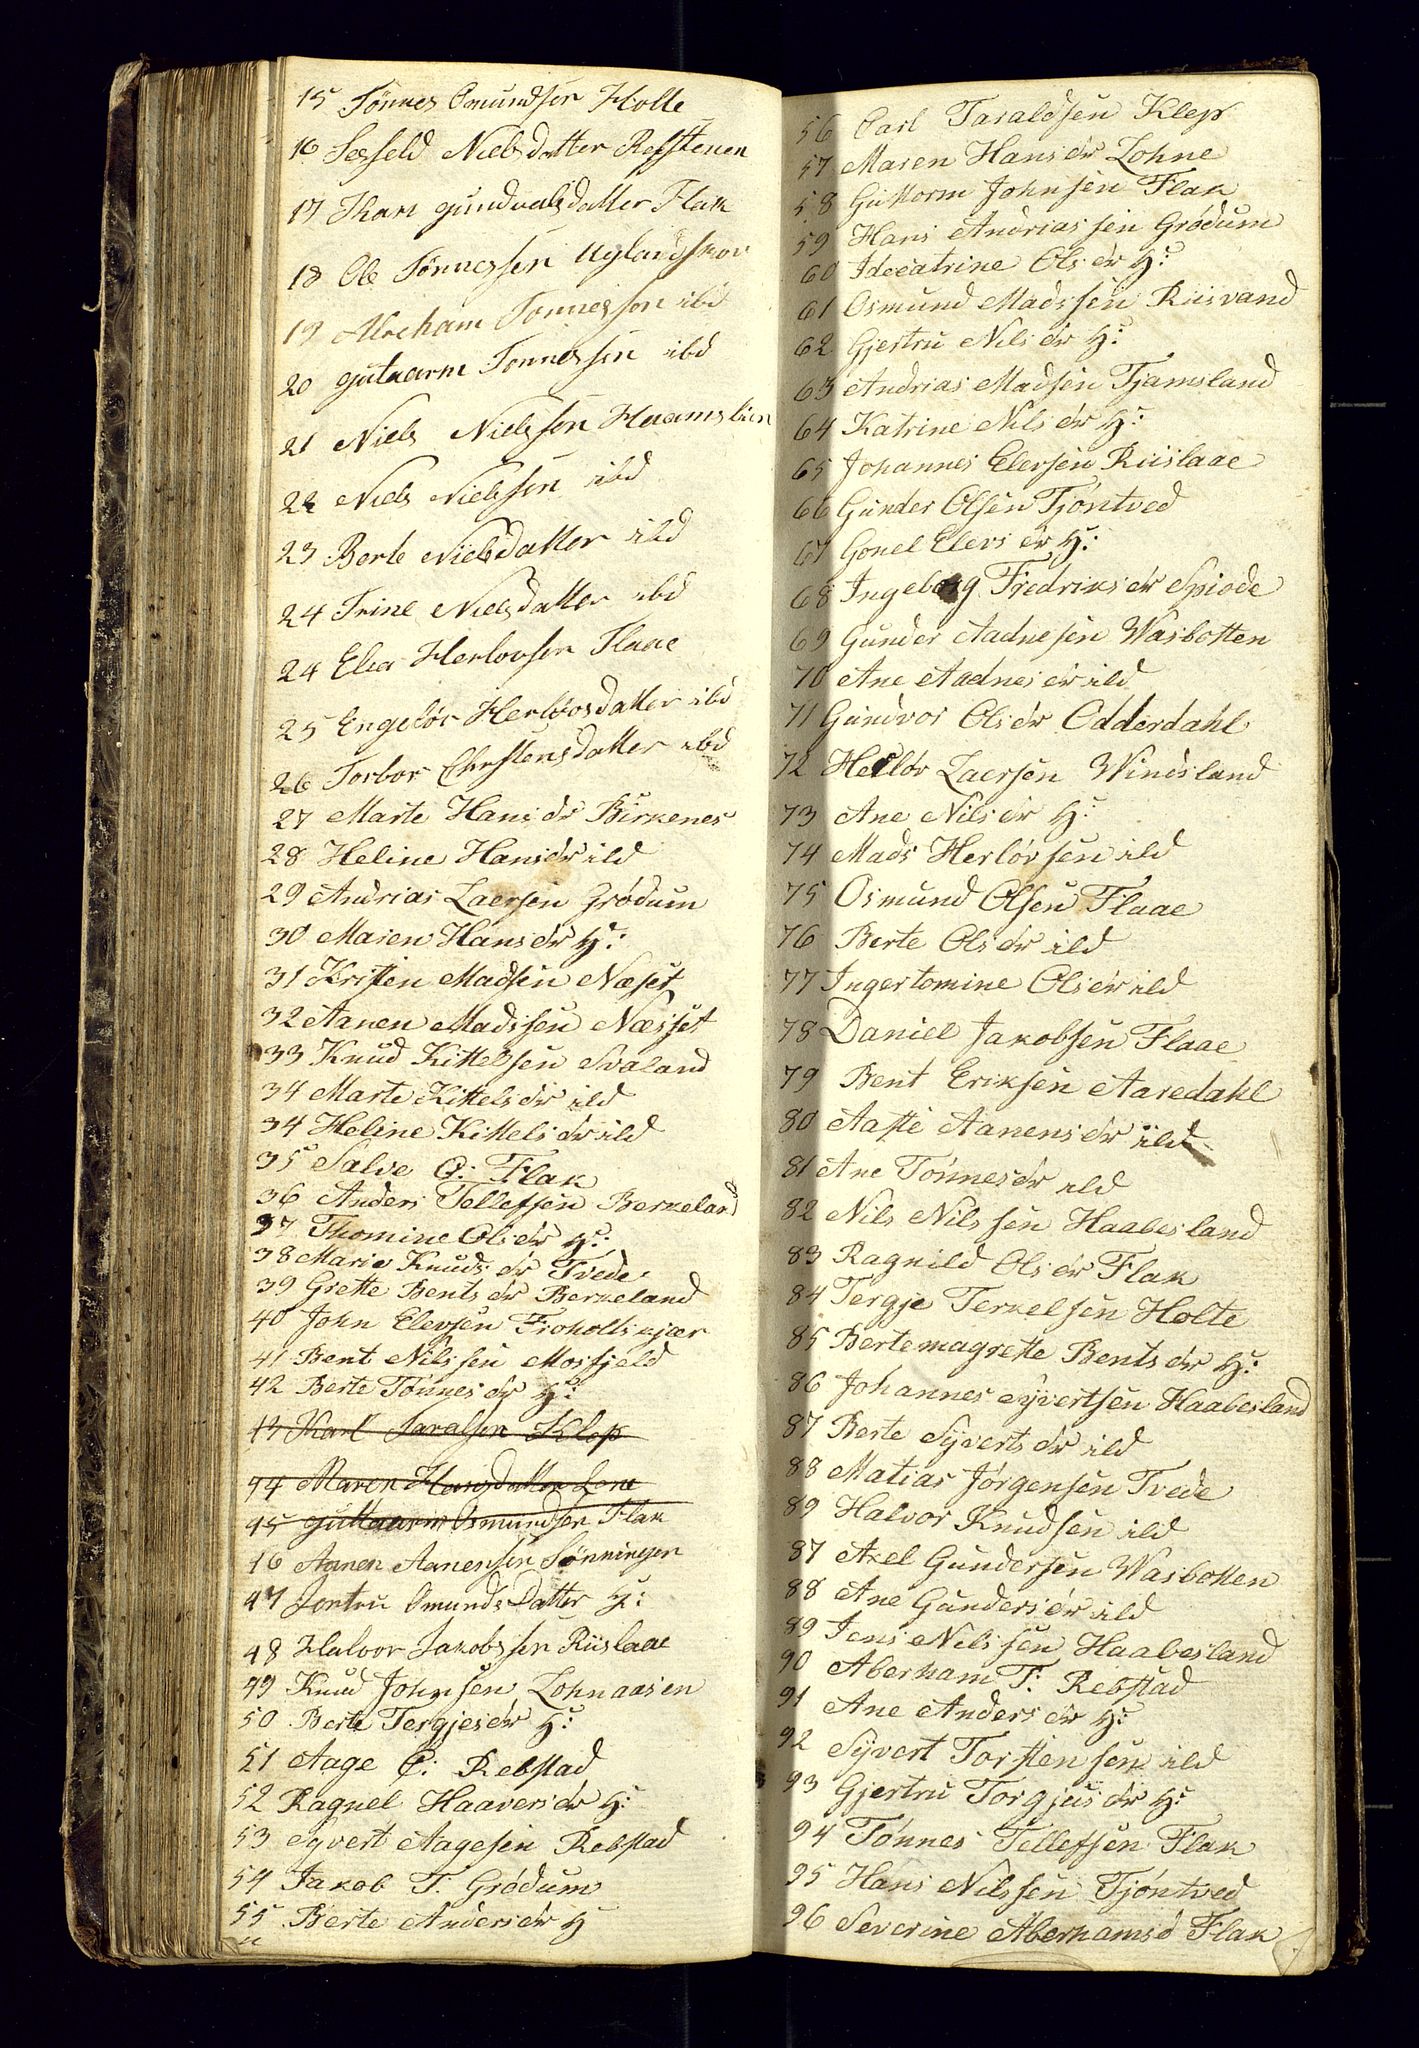 15 Tønnes Omundsen Holle
16 Seefeld Nielsdatter Refstenen
17 Than gundvalsdatter Flak
18 Ole Tønnessen Uglandskov
19 Abraham Tonnesson ibd
20 gutaarm Tonnessen ibd
21 Niels Nielssen Haamslien
22 Niels Nielssen ibd
23 Berte Nielsdatter ibd
24 Trine Nielsdatter ibd
24 Elea Herlovsen Flaae
25 Engelør Herløvsdatter ibd
26 Torbor Christensdatter ibd
27 Marte Hans dr Birkenes
28 Heline Hans dr ibd
29 Andrias Laersen Grödum
30 Maren Hans dr H:
31 Kristen Madsen Næset
32 Aanen Madssen Næsset
33 Knud Kittelsen Svaland
34 Marte Kittels dr ibd
34 Heline Kittels dr ibd
35 Salve O: Flak
36 Anders Tellefsen Berkeland
37 Thomine Ols dr H:
38 Marie Knuds dr Tvede
39 Grette Bents dr Berkeland
40 John Elevsen Froholtskjær
41 Bent Nilssen Mosfjeld
42 Berte Tönnes dr H:
43 Karl Taralsen Klep
44 Maren Hansdatter Lone
45 guttaarm Osmundsen Flak
46 Aanen Aanensen Sønningen
47 Jortru Omunds Datter H:
48 Halvor Jakobssen Riislaae
49 Knud Johnsen Lohnaasen
50 Berte Tergjes dr H:
51 Aage O: Rebstad
52 Ragnel Haavers dr H:
53 Syvert Aagesen Rebstad
54 Jakob T. Grödum
55 Berte Anders dr H
56 Carl Taraldsen Klep
57 Maren Hans dr Lohne
58 Guttorm Johnsen Flak
59 Hans Andriassen Grödum
60 Idecatrine Ols dr H:
61 Osmund Madssen Riisvand
62 Gjertru Nils dr H:
63 Andrias Madsen Tjamsland
64 Katrine Nils dr H:
65 Johannes Elersen Riislaae
66 Gunder Olsen Tjontved
67 Gonel Elevs dr H:
68 Ingeborg Fredriks dr Spiode
69 Gunder Aadnesen Wasbotten
70 Ane Aadnes dr ibd
71 Gundvor Ols dr Odderdahl
72 Herlöv Laersen Windsland
73 Ane Nils dr H:
74 Mads Herlövsen ibd
75 Osmund Olsen Flaae
76 Berte Ols dr ibd
77 Ingertomine Ols dr ibd
78 Daniel Jakobsen Flaae
79 Bent Eriksen Aaredahl
80 Aaste Aanens dr ibd
81 Ane Tönnes dr ibd
82 Nils Nilssen Haabesland
83 Ragnild Ols dr Flak
84 Tergje Terkelsen Holte
85 Bertemagrette Bents dr H:
86 Johannes Syvertsen Haabesland
87 Berte Syverts dr ibd
88 Matias Jørgensen Tvede
89 Halvor Knudsen ibd
87 Axel Gundersen Wasbotten
88 Ane Gunders dr ibd
89 Jens Nilssen Haabesland
90 Aberham T: Rebstad
91 Ane Anders dr H:
92 Syvert Torstensen ibd
93 Gjertru Torgjus dr H:
94 Tønnes Tellefsen Flak
95 Hans Nilssen Tjöntved
96 Severine Aberhamsd Flak